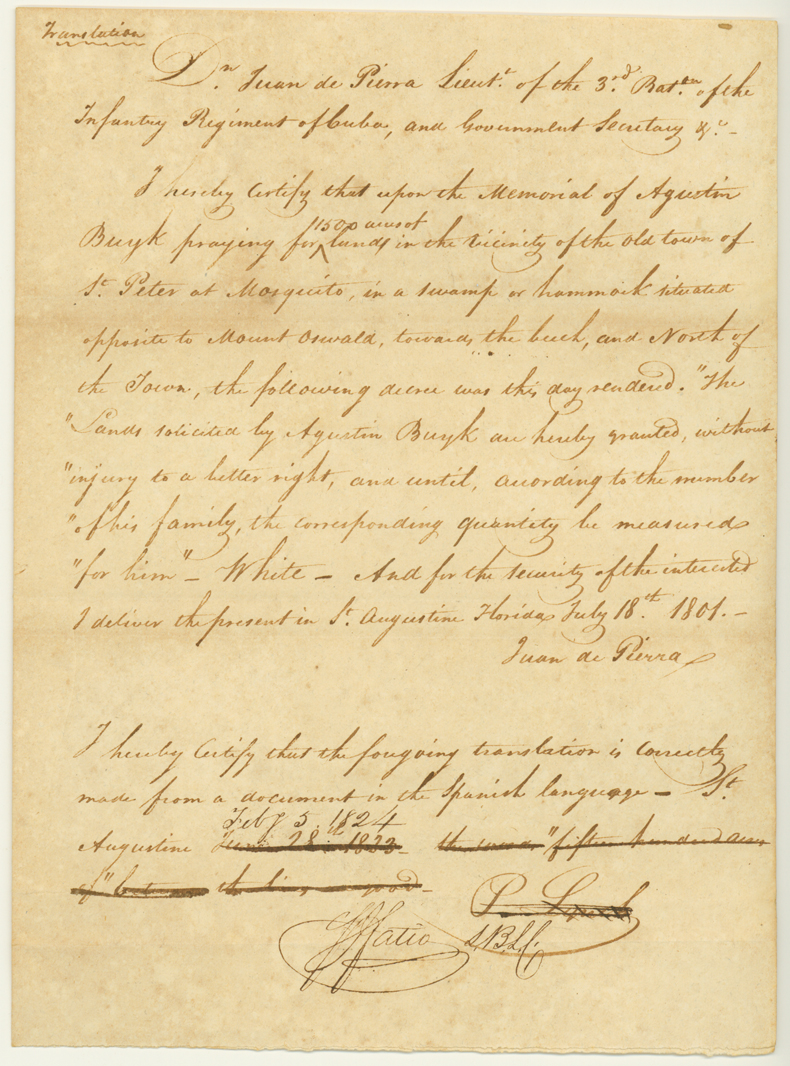 Translation
Dn. Juan de Pierra Lieut. of the 3rd. Bat.on of the
Infantry Regiment of Cuba, and Government Secretary &c. -
I hereby Certify that upon the Memorial of Agustin
1500 acres of
Buyk praying for lands in the vicinity of the old town of
St. Peter at Mosquito, in a swamp or hammock situated
opposite to Mount Oswald, towards the beech, and North of
the Town, the following decree was this day rendered. "The
"Lands solicited by Agustin Buyk are hereby granted, without
"injury to a better right, and until, according to the number
"of his family, the corresponding quantity be measured
"for him" - White - And for the security of the interested
I deliver the present in St. Augustine Florida July 18th. 1801. -
Juan de Pierra
I hereby Certify that the foregoing translation is correctly
made from a document in the Spanish language - St.
Feby 5. 1824
Augustine 28th 1823 - the word "fifteen hundred acres
of" between the lines
P. Lynch
FJFatio S.B.L.C.